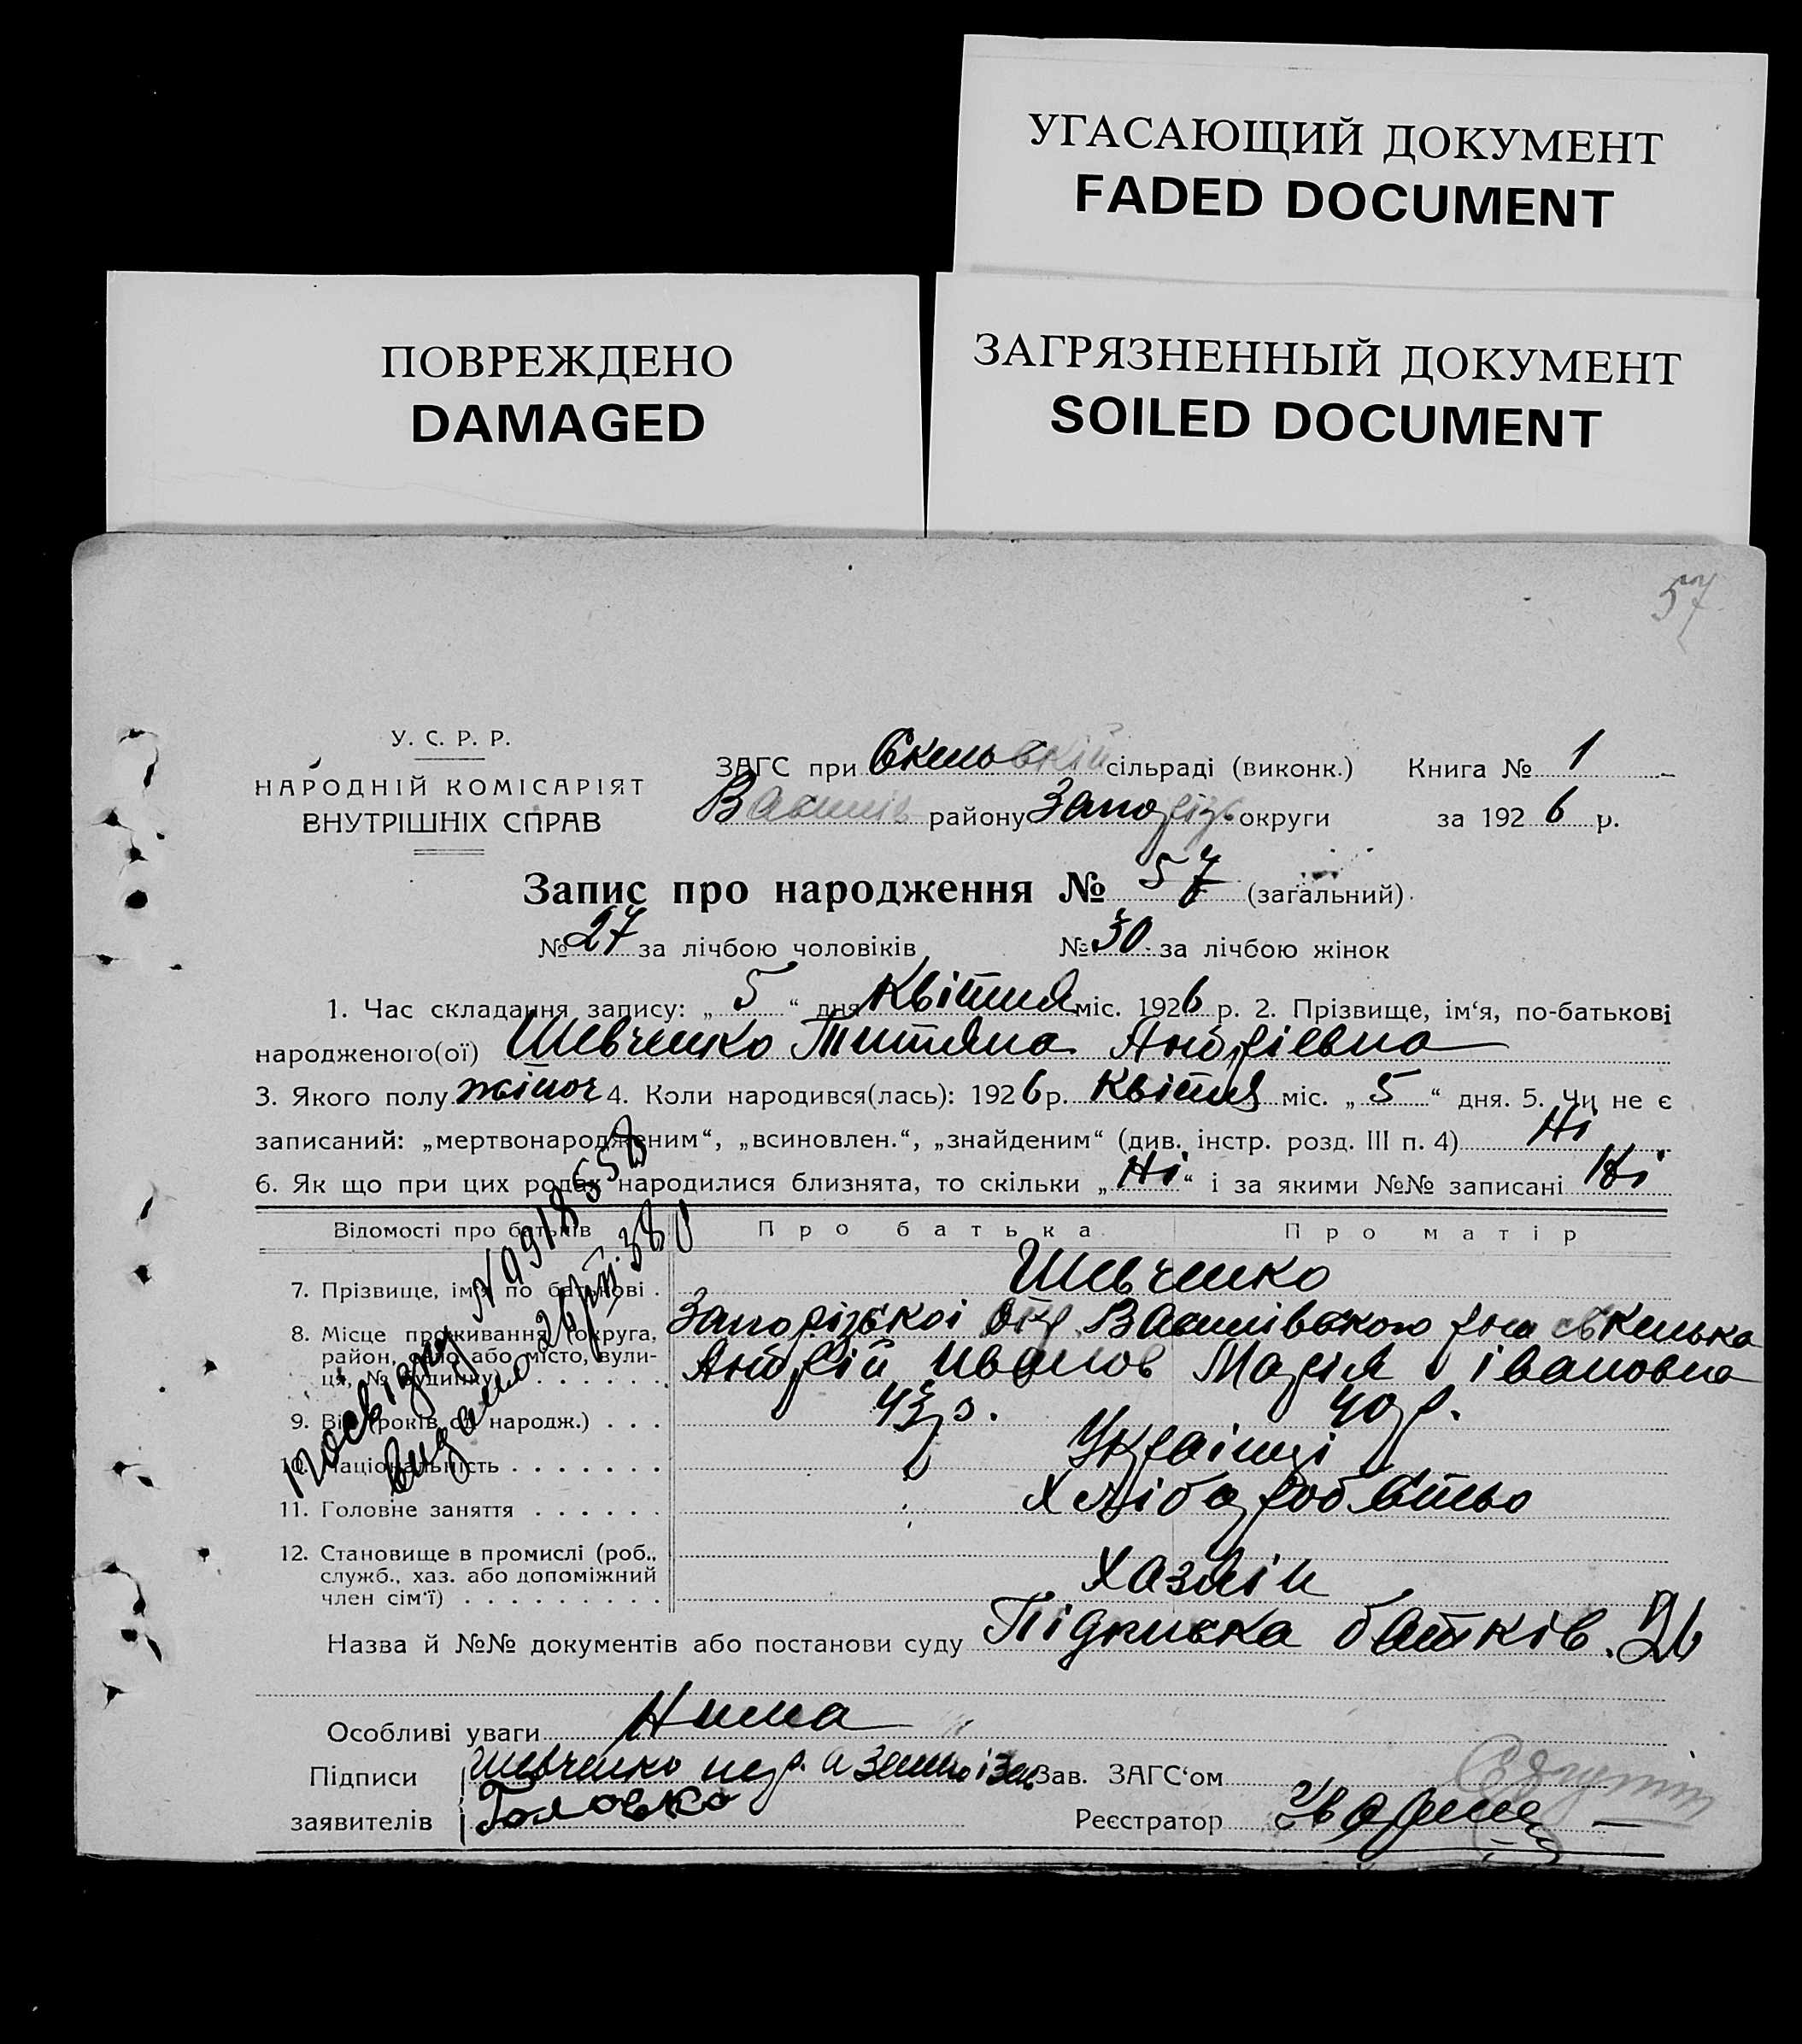 УГАСАЮЩИЙ ДОКУМЕНТ
FADED DOCUMENT
ПОВРЕЖДЕНО
DAMAGED
ЗАГРЯЗНЕННЫЙ ДОКУМЕНТ
SOILED DOCUMENT
57
У. С. Р. Р.
НАРОДНІЙ КОМІСАРІЯТ
ВНУТРІШНІХ СПРАВ
ЗАГС при Скельовскій сільраді (виконк.) Книга № 1
Василів району Запоріз. округи за 1926 р.
Запис про народження № 57 (загальний)
№ 27 за лічбою чоловіків № 30 за лічбою жінок
1. Час складання запису: „ 5 “ дня Квітня міс. 1926 р. 2. Прізвище, ім‘я, по-батькові
народженого(ої) Шевченко Титяна Андріевна
3. Якого полу жіноч 4. Коли народився(лась): 1926 р. Квітня міс. „ 5 “ дня. 5. Чи не є
записаний: „мертвонародженим“, „всиновлен.“, „знайденим“ (див. інстр. розд. III п. 4) Ні
6. Як що при цих родах народилися близнята, то скільки „ Ні “ і за якими №№ записані Ні
Відомості про батьків Про батька Про матір
7. Прізвище, ім‘я по батькові . Шевченко
8. Місце проживання (округа, Запорізькоі окр. Василівського
район, село або місто, вули-
ця, № будинку) . . . . . . Андрій Иванов Марія івановна
9. Вік (років од народж.) . . . 43 р. 40 р.
10. Національність . . . . . . . Украінці
11. Головне заняття . . . . . . Хліборобство
12. Становище в промислі (роб.,
служб., хаз. або допоміжний Хазяін
член сім‘ї) . . . . . . . . .
Посвідку №
видано
Назва й №№ документів або постанови суду Підписка батків.
Особливі уваги Нима
Підписи Шевченко Зав. ЗАГС‘ом
заявителів Головко Реєстратор